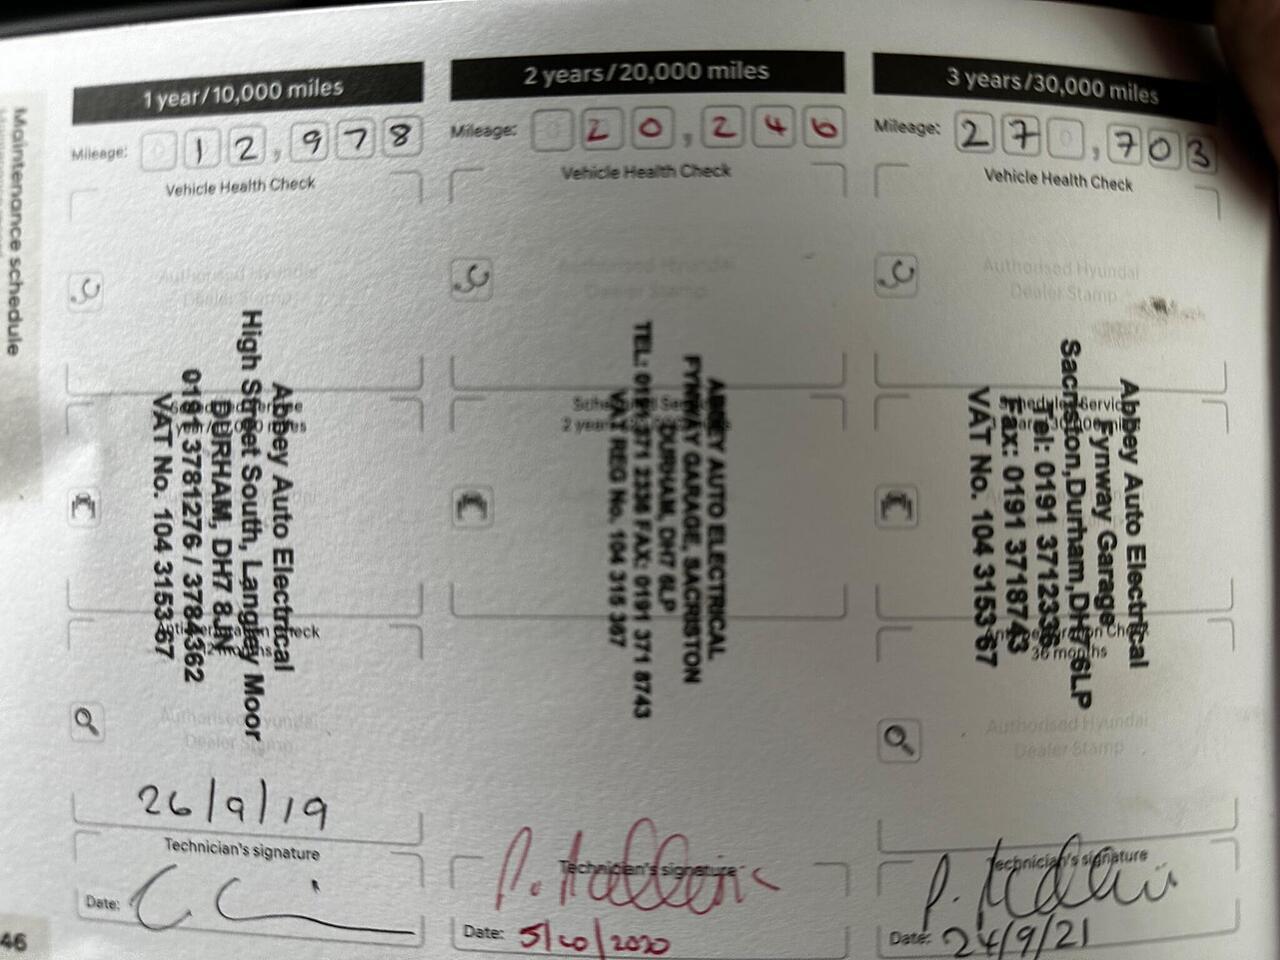 Maintenance schedule
1 year/10,000 miles
Mileage: 12,978
Vehicle Health Check
Authorised Hyundai
Dealer Stamp
Abbey Auto Electrical
High Street South, Langley Moor
DURHAM, DH7 8JN
0191 3781276 / 3784362
VAT No. 104 3153 67
Authorised Hyundai
Dealer Stamp
26/9/19
Technician's signature
Date:
2 years/20,000 miles
Mileage: 20,246
Vehicle Health Check
Authorised Hyundai
Dealer Stamp
ABBEY AUTO ELECTRICAL
FYNWAY GARAGE, SACRISTON
DURHAM, DH7 6LP
TEL: 0191 371 2336 FAX: 0191 371 8743
VAT REG No. 104 315 367
Technician's signature
Date: 5/10/2020
3 years/30,000 miles
Mileage: 27,703
Vehicle Health Check
Authorised Hyundai
Dealer Stamp
Abbey Auto Electrical
Fynway Garage
Sacriston,Durham,DH7 6LP
Tel: 0191 3712336
Fax: 0191 3718743
VAT No. 104 3153 67
36 months
Authorised Hyundai
Dealer Stamp
Technician's signature
Date: 24/9/21
46